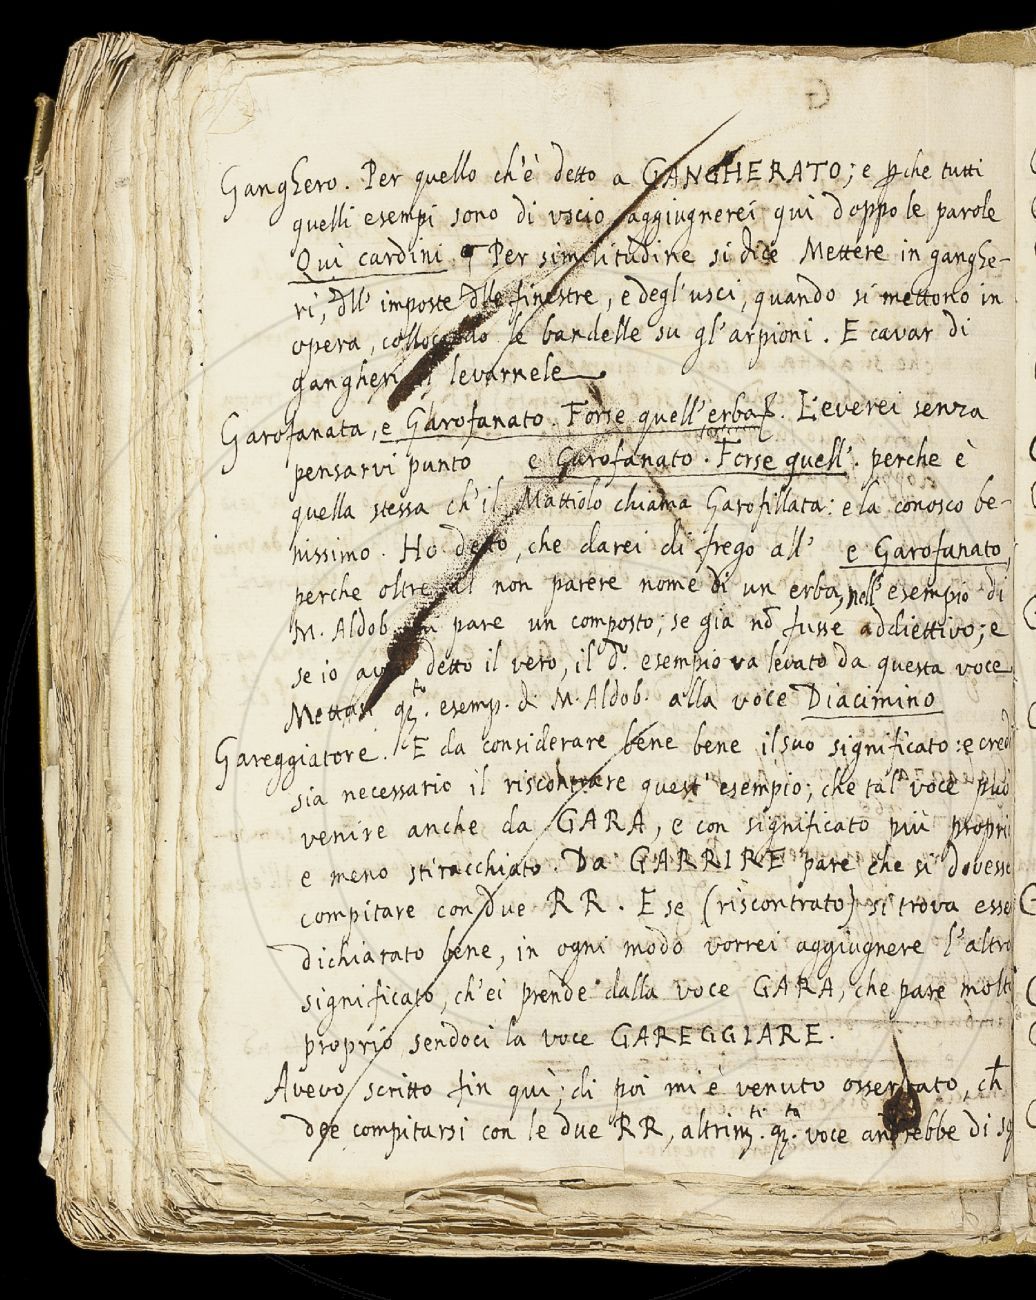 G
Ganghero. Per quello ch'è detto a GANGHERATO; e ꝑche tutti
quelli esempi sono di vscio aggiugnerei quì doppo le parole
Quì cardini. ¶ Per similitudine si dice Mettere in ganghe-
ri, dll' imposte dlle finestre, e degl'usci, quando si mettono in
opera, collocando le bandelle su gl'arpioni. E cavar di
gangheri levarnele
Garofanata, e Garofanato. Forse quell'erba. L'everei senza
pensarvi punto e Garofanato. Forse quell'. perche è
quella stessa ch'il Mattiolo chiama Garofillata: e la conosco be-
nissimo. Ho detto, che darei di frego all' e Garofanato,
perche oltre al non parere nome di un erba, nell'esempio di
M. Aldob. pare un composto; se già nō fusse addiettivo; e
se io avrò detto il vero, il d.º esempio va levato da questa voce
Mettasi q.to esemp. di M. Aldob. alla voce Diacimino
Gareggiatore. E da considerare bene bene il suo significato: e cred
sia necessario il riscontrare quest' esempio; che tal voce può
venire anche da GARA, e con significato più propri
e meno stiracchiato. Da GARRIRE pare che si dovess
compitare con due RR. E se (riscontrato) si trova esse
dichiarato bene, in ogni modo vorrei aggiugnere l'altro
significato, ch'ei prende dalla voce GARA, che pare molt
proprio, sendoci la voce GAREGGIARE.
Avevo scritto fin quì; di poi mi è venuto osservato, ch
dee compitarsi con le due RR, altrim.ti q.ta voce andrebbe di sq